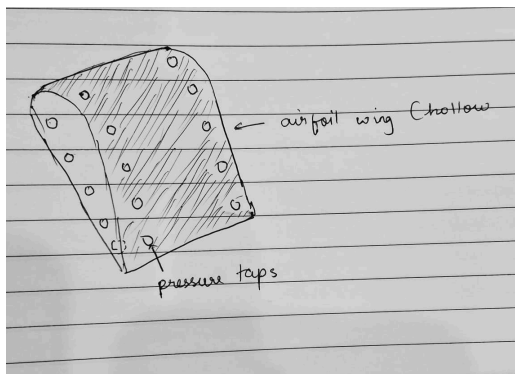 airfoil wing (hollow
pressure taps